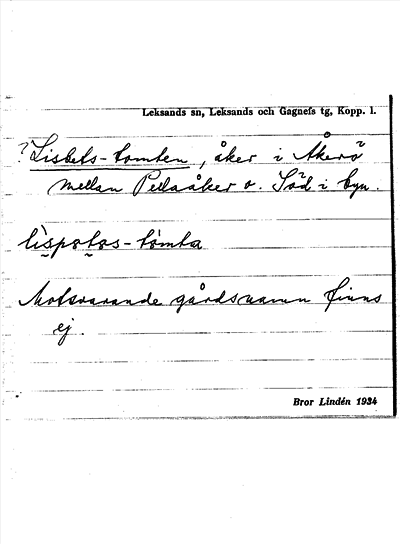 Leksands sn, Leksands och Gagnefs tg, Kopp. l.
? Lisbets-tomten, åker i Åkerö
mellan Pellasåker o. Söd i byn.
lìspotos-tòmta
Motsvarande gårdsnamn finns
ej.
Bror Lindén 1934